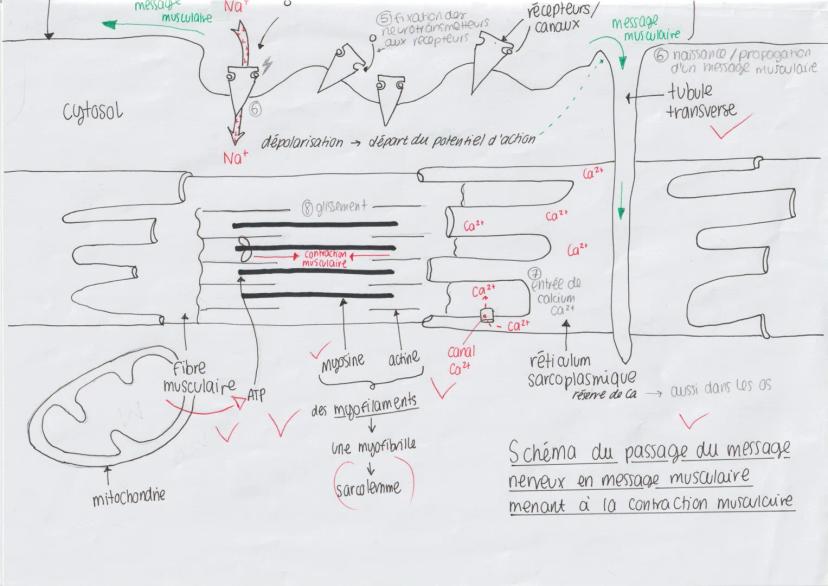 message
musculaire
Na⁺
⑤ fixation des
neurotransmetteurs
aux récepteurs
récepteurs/
canaux
message
musculaire
⑥ naissance/propagation
d'un message musculaire
tubule
transverse
cytosol
⑥
Na⁺
dépolarisation → départ du potentiel d'action
Ca²⁺
Ca²⁺
Ca²⁺
Ca²⁺
⑧ glissement
contraction
musculaire
⑦
entrée de
calcium
Ca²⁺
Ca²⁺
Ca²⁺
canal
Ca²⁺
fibre
musculaire
ATP
myosine
actine
réticulum
sarcoplasmique
réserve de Ca → aussi dans les os
des myofilaments
une myofibrille
sarcolemme
mitochondrie
Schéma du passage du message
nerveux en message musculaire
menant à la contraction musculaire